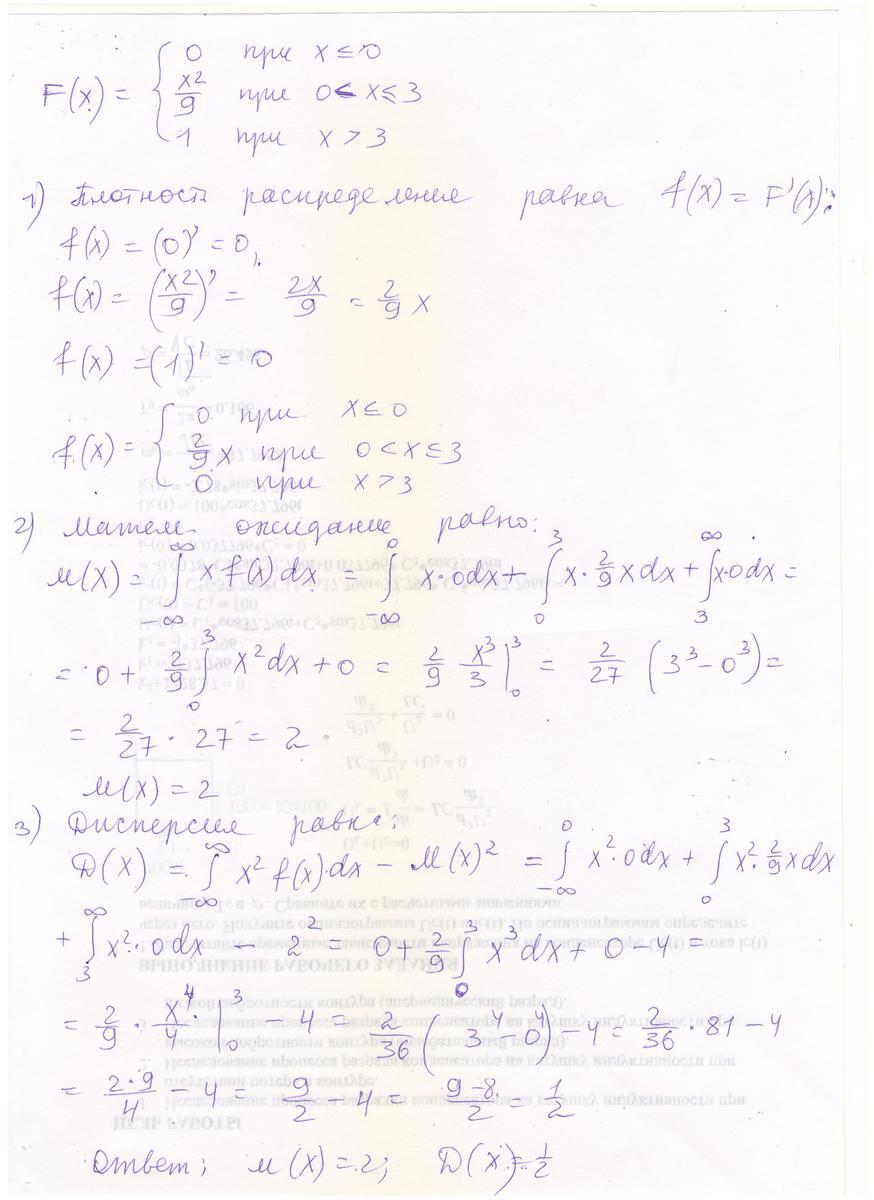 F(x) = { 0 при x ≤ 0
x²/9 при 0 < x ≤ 3
1 при x > 3
1) Плотность распределение равна f(x) = F'(x):
f(x) = (0)' = 0,
f(x) = (x²/9)' = 2x/9 = 2/9 x
f(x) = (1)' = 0
f(x) = { 0 при x ≤ 0
2/9 x при 0 < x ≤ 3
0 при x > 3
2) Матем. ожидание равно:
M(X) = ∫_{-∞}^{∞} x f(x) dx = ∫_{-∞}^{0} x·0dx + ∫_{0}^{3} x · 2/9 x dx + ∫_{3}^{∞} x·0 dx =
= 0 + 2/9 ∫_{0}^{3} x² dx + 0 = 2/9 x³/3 |_{0}^{3} = 2/27 (3³ – 0³) =
= 2/27 · 27 = 2
M(X) = 2
3) Дисперсия равна:
D(X) = ∫_{-∞}^{∞} x² f(x)·dx – M(X)² = ∫_{-∞}^{0} x²·0dx + ∫_{0}^{3} x²· 2/9 x dx
+ ∫_{3}^{∞} x²·0dx – 2² = 0 + 2/9 ∫_{0}^{3} x³ dx + 0 – 4 =
= 2/9 · x⁴/4 |_{0}^{3} – 4 = 2/36 (3⁴ – 0⁴) – 4 = 2/36 · 81 – 4
= 2·9/4 – 4 = 9/2 – 4 = 9-8/2 = 1/2
Ответ: M(X) = 2; D(X) = 1/2